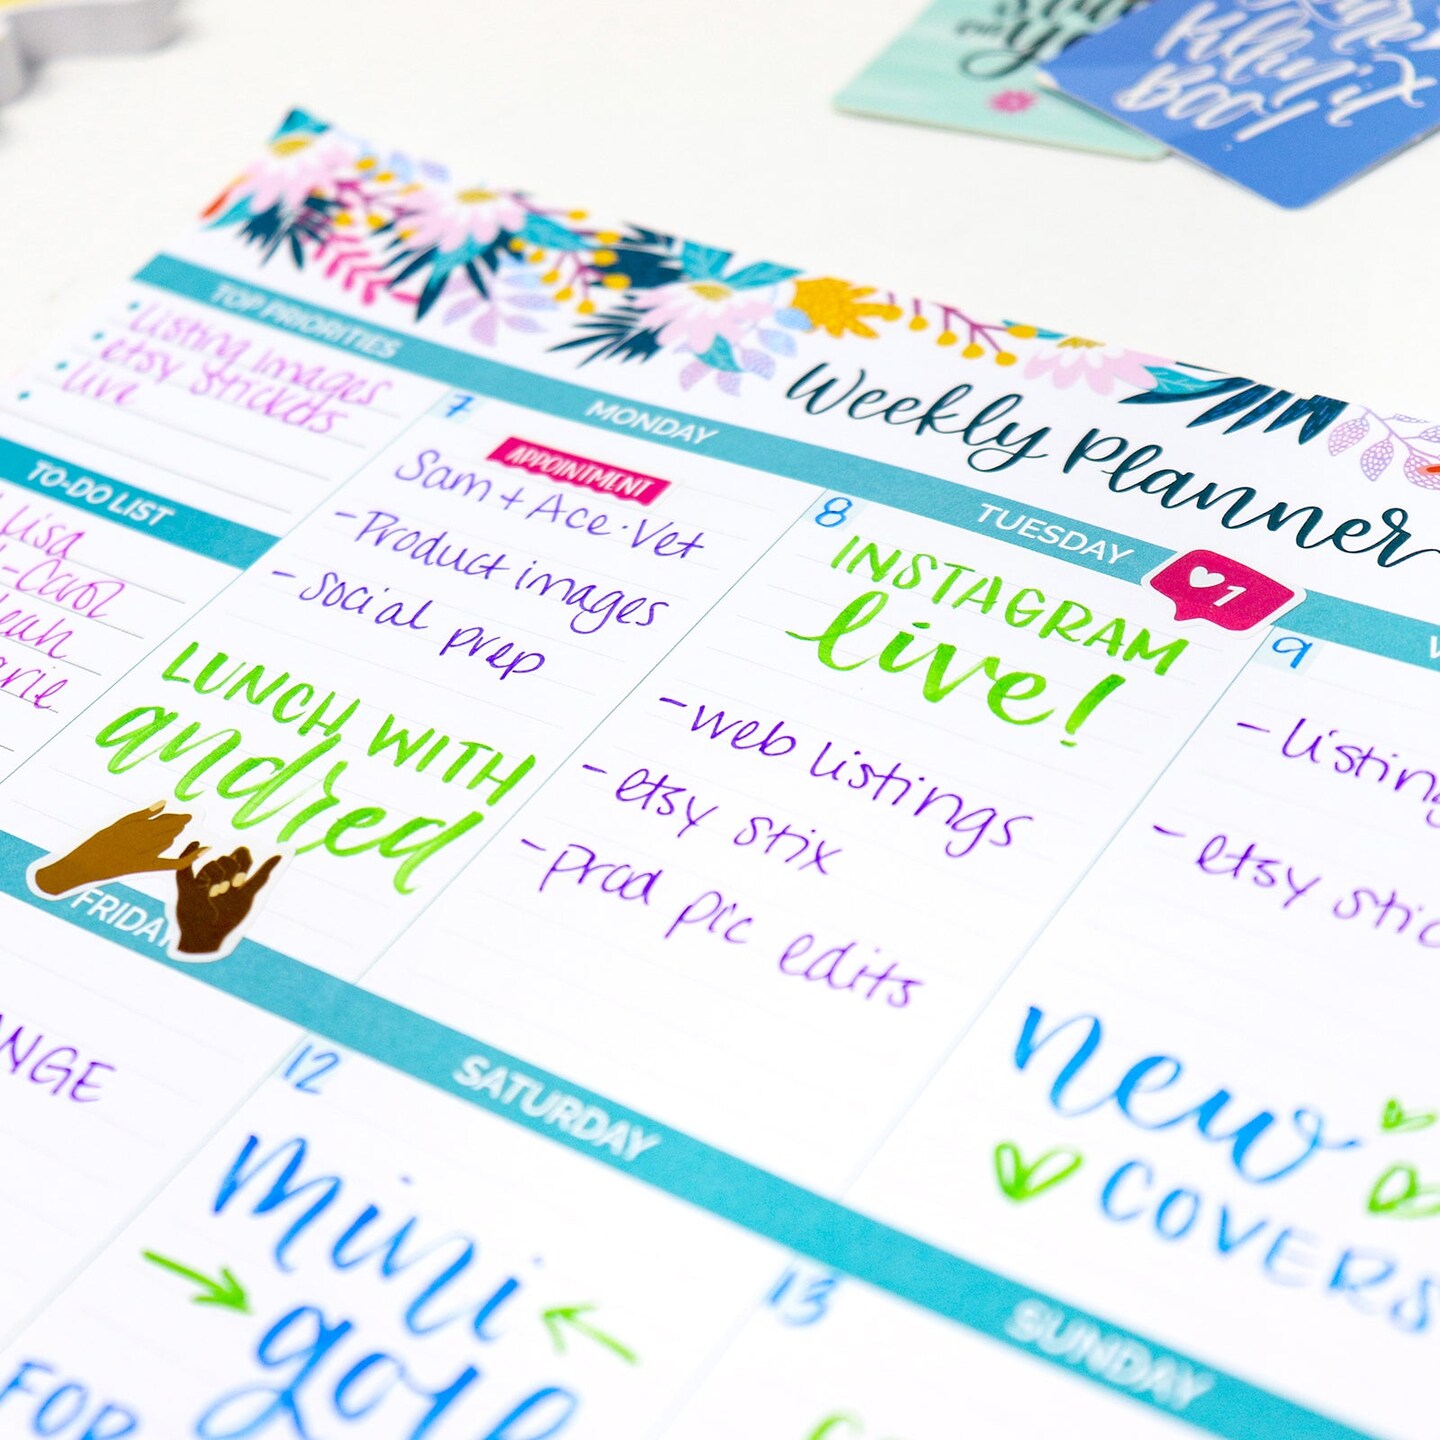 you
Killin' it
Boo!
Weekly Planner
TOP PRIORITIES
• Listing images
• etsy stickers
• live
•
TO-DO LIST
Lisa
-Carol
7
MONDAY
APPOINTMENT
Sam + Ace • Vet
- Product images
- social prep
LUNCH WITH
andrea
8
TUESDAY
1
INSTAGRAM
live!
- web listings
- etsy stix
- prod pic edits
9
W
- listing
- etsy stic
new
COVERS
FRIDAY
NGE
12
SATURDAY
mini
golf
FOR
13
SUNDAY